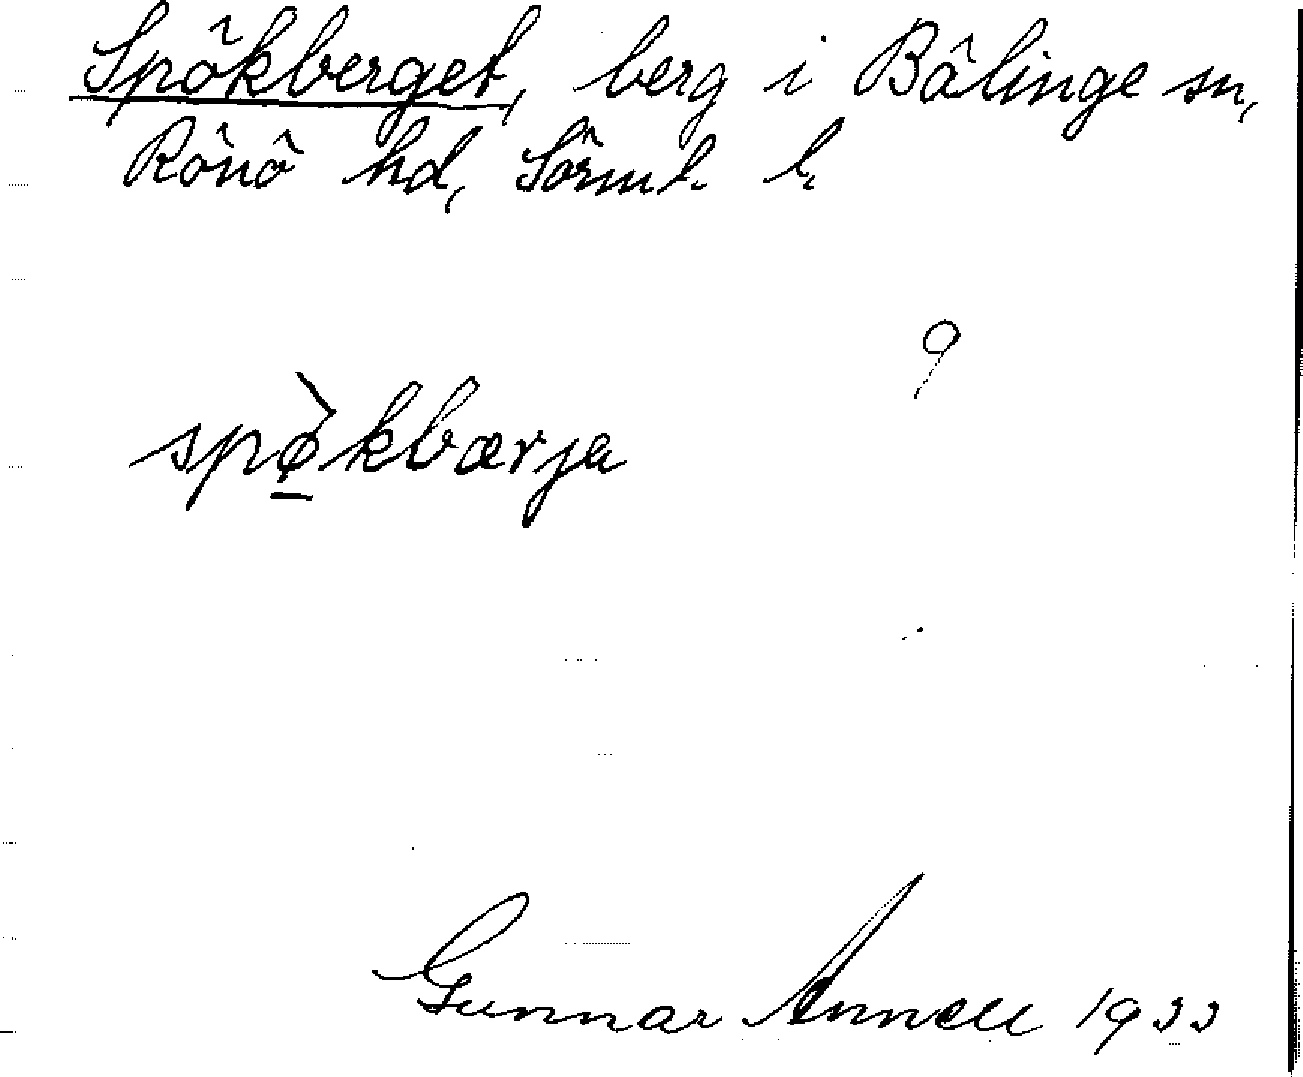 Spökberget, berg i Bälinge sn,
Rönö hd, Sörml. l.
9
spø̀kbærja
Gunnar Annell 1933